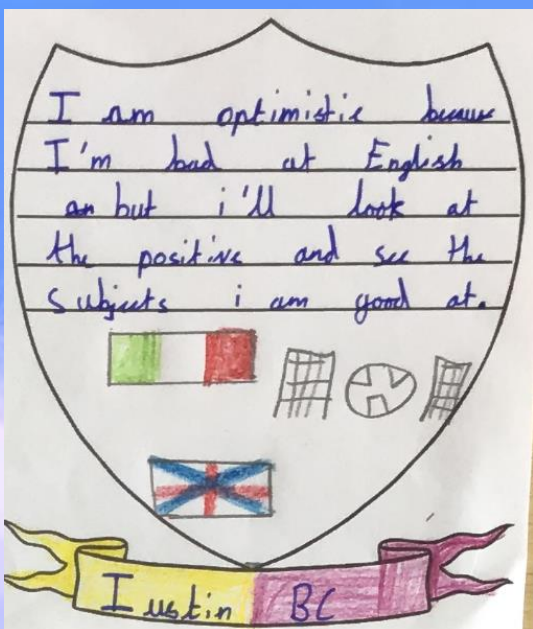 I am optimistic because
I'm bad at English
an but i'll look at
the positive and see the
subjects i am good at.
Iustin BC